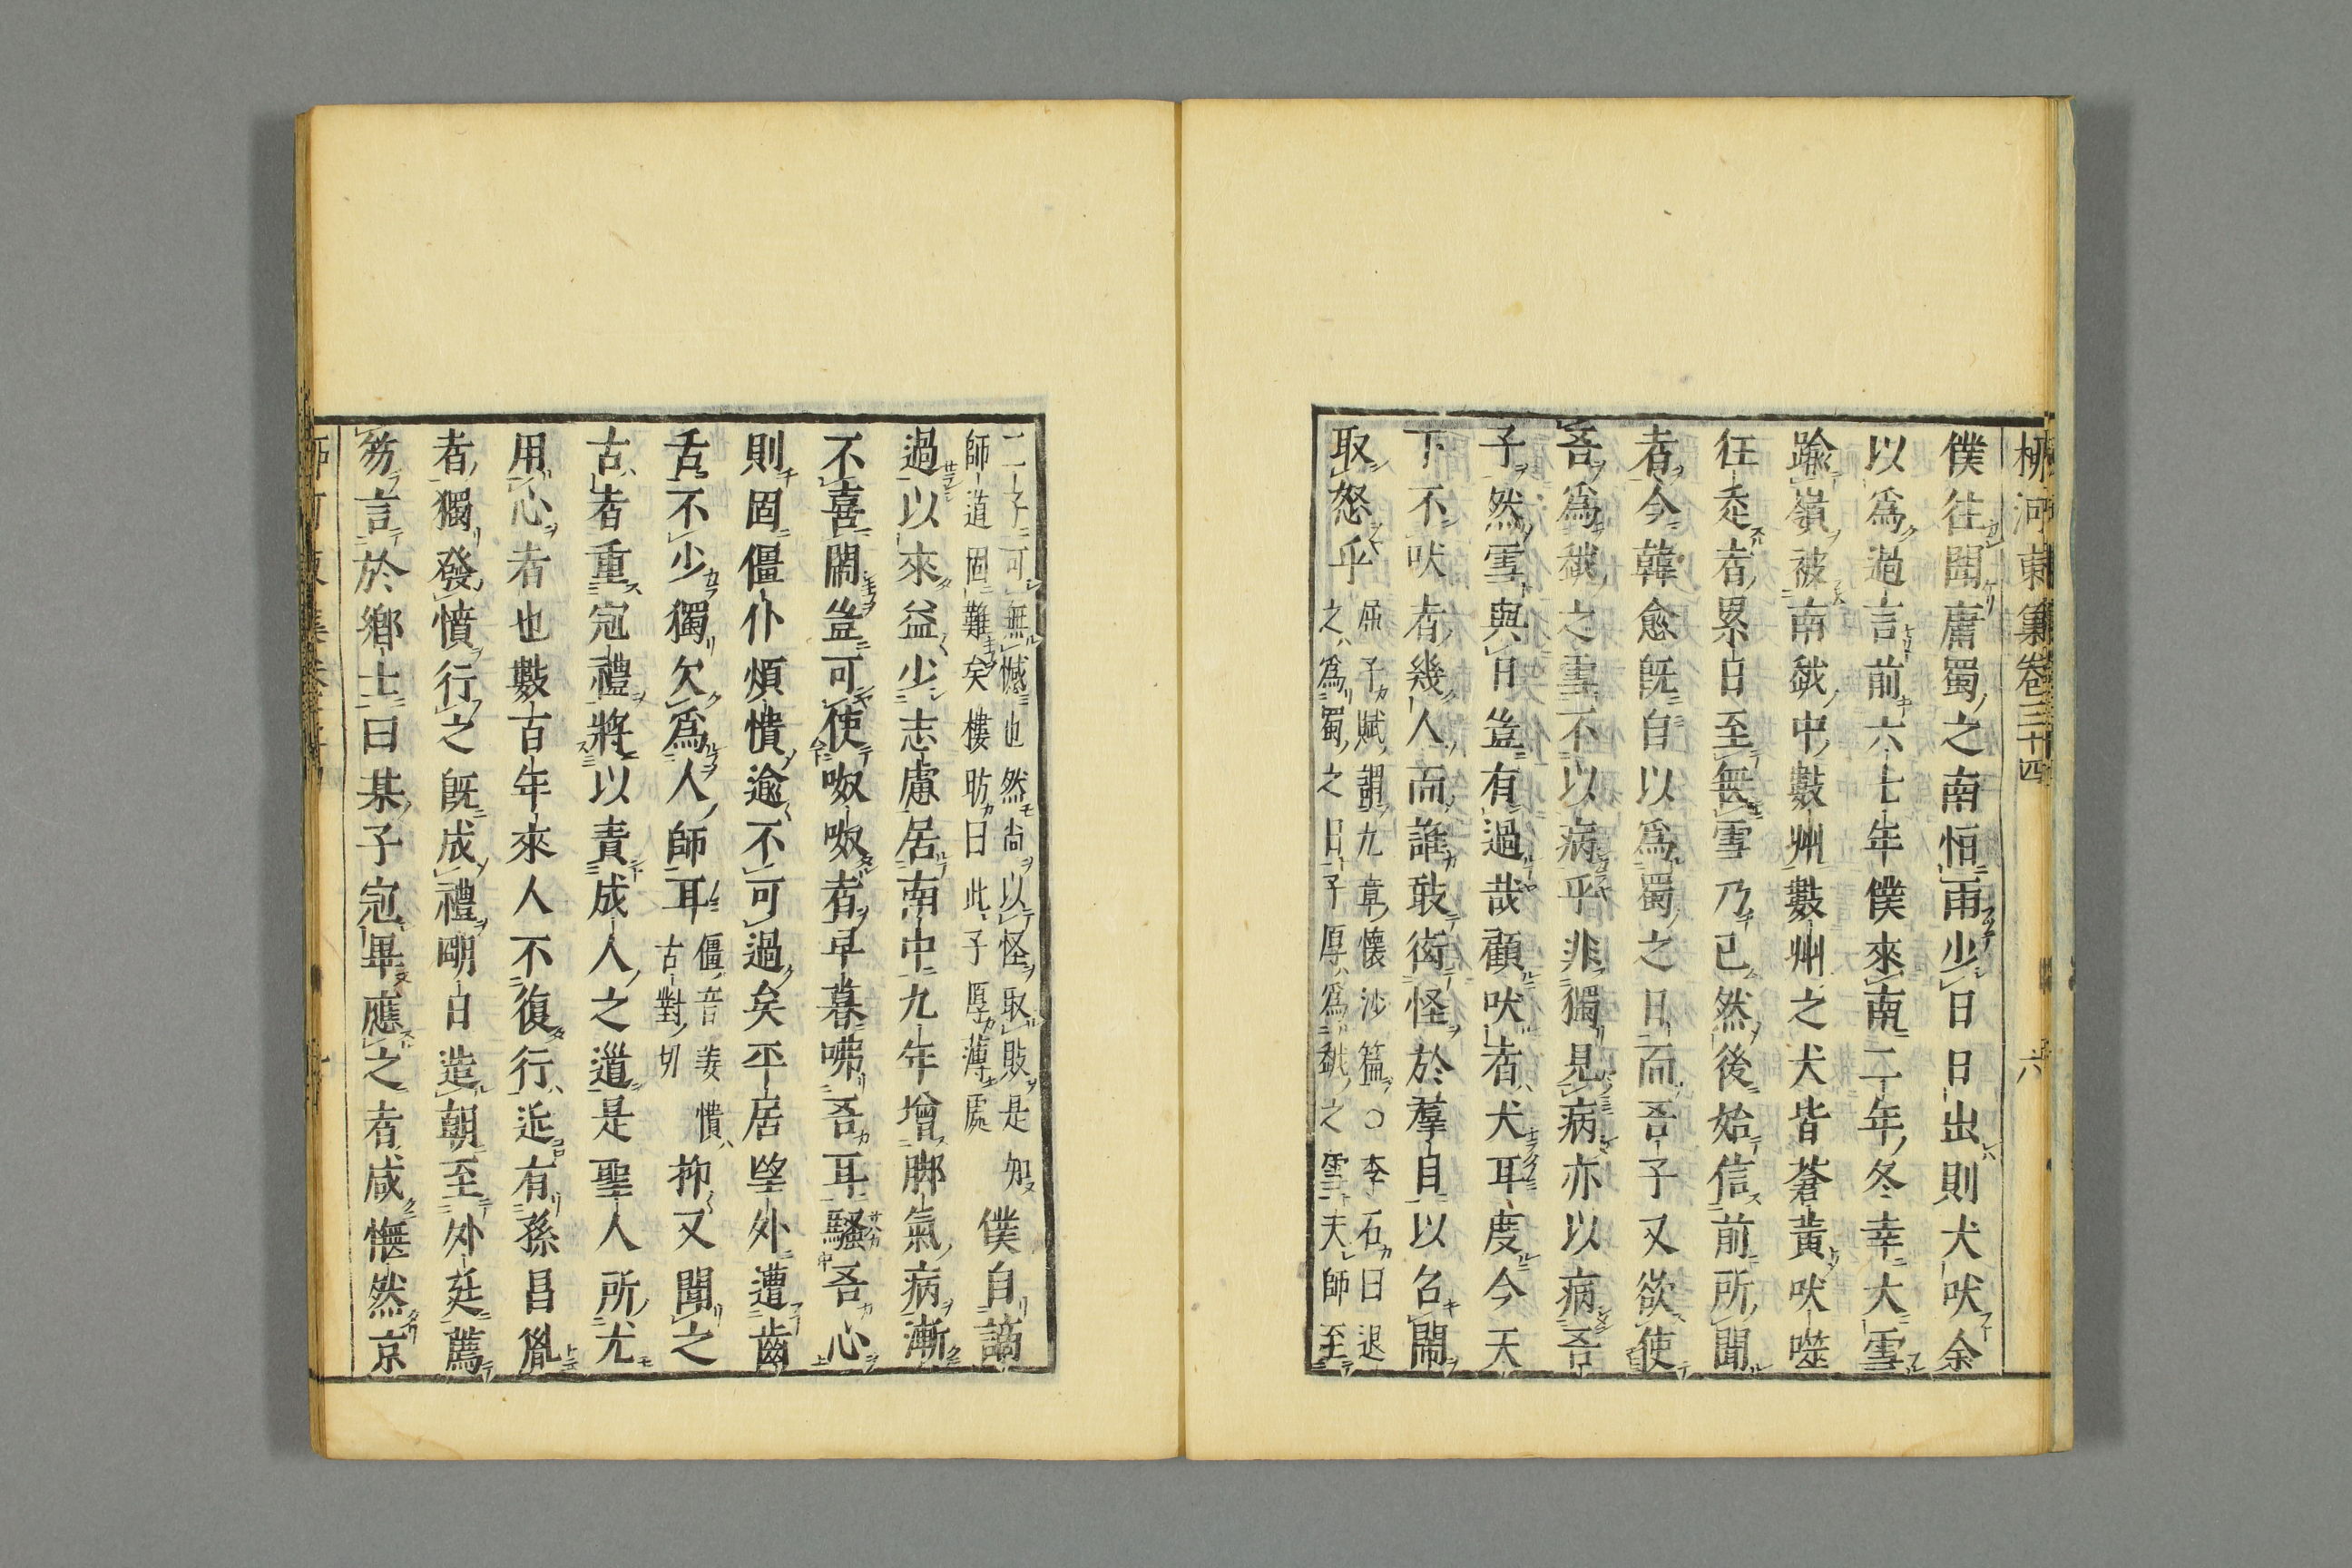 柳河東集卷三十四 六
僕往聞庸蜀之南恒雨少日日出則犬吠余
以為過言前六七年僕來南二年冬幸大雪
踰嶺被南越中數州數州之犬皆蒼黃吠噬
狂走者累日至無雪乃已然後始信前所聞
者今韓愈既自以為蜀之日而吾子又欲使
吾為越之雪不以病乎非獨見病亦以病吾
子然雪與日豈有過哉顧吠者犬耳度今天
下不吠者幾人而誰敢衒怪於羣目以召鬧
取怒乎
屈子賦謂九章懷沙篇○李石曰退
之為蜀之日子厚為越之雪夫師至
二子可無憾也然尚以怪取敗是知
師道固難矣樓昉曰此子厚薄處
僕自謫
過以來益少志慮居南中九年增脚氣病漸
不喜鬧豈可使呶呶者早暮咈吾耳騷吾心
則固僵仆煩憒逾不可過矣平居望外遭齒
舌不少獨欠為人師耳
僵音姜憒
古對切
抑又聞之
古者重冠禮將以責成人之道是聖人所尤
用心者也數百年來人不復行近有孫昌胤
者獨發憤行之既成禮明日造朝至外廷薦
笏言於鄉士曰某子冠畢應之者咸憮然京